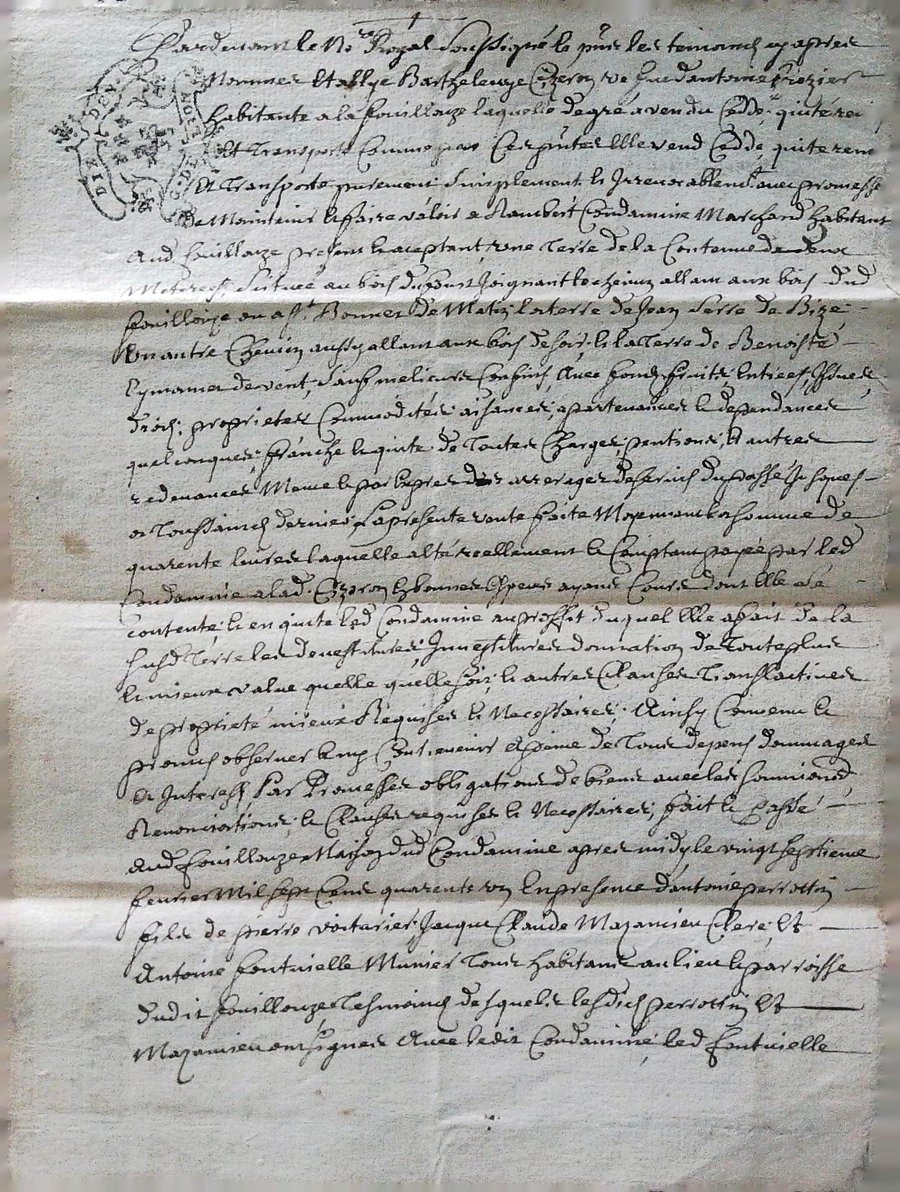 Pardevant le No.re Royal soussigné & pnts les temoins cy apres
Nommes Establye Barthelemye Cizeron ve feu d'antoine Crozier
habitante a la fouillouze laquelle de gré a vendu Ceddé quité remi
Et Transporté Comme par Ces pntes Elle vend Cedde, quite remt
Et Transporte purement simplement & Irrevocablemt. avec promesse
De Maintenir & faire valoir a Rambert Condamine Marchand habitant
aud fouillouze present & aceptant, une Terre de la Contenue de deux
Meterees, situee au bois du joignant le chemin allant aux bois dud
fouillouze ou a St. Bonnet De Matin, la terre de Jean Serre de Bize,
Un autre Chemin aussy allant aux bois de soir, & la Terre de Benoiste
de vent, sauf melieurs Confins, avec fonds, fruits, Entrees, Issues,
droits, proprietes Commodités aisances, apartenances & dependances
quelconques, franche & quite de Toutes Charges, pentions, Et autres
redevances Meme & par Expres des arrerages de servis du passé Jusques
a Toussaincts dernier, La presente vente faite Moyennant la somme de
quarente livres laquelle a été reellement & Comptant payée par led
Condamine a lad. Cizeron En bonnes Especes ayant Cours dont Elle c'est
contenté & en quite led Condamine au proffit duquel Elle a fait de la
susd Terre les devestitures, Investitures donnation de Toute plus
& mieux value quelle quelle soit, & autres Clauses Translactives
de proprieté mieux Requises & Necessaires; Ainsy Convenu &
promis observer & ny Contrevenir a peine de Tous depens dommages
Et Interests, Par Promesses obligations de biens avec les soumions,
Renonciations, & Clauses requises & Necessaires, fait & Passé
aud fouillouze Maison dud Condamine apres midy le vingt septieme
fevrier Mil sept Cens quarente un En presence d'antoine perrottin
fils de pierre voiturier, Jacque Claude Mazancieu Clerc, Et
Antoine fontvielle Munier Tous habitants au lieu & parroisse
dudit fouillouze, Tesmoins desquels lesdits perrottin Et
Mazancieu ont signes Avec ledit Condamine, led fontvielle